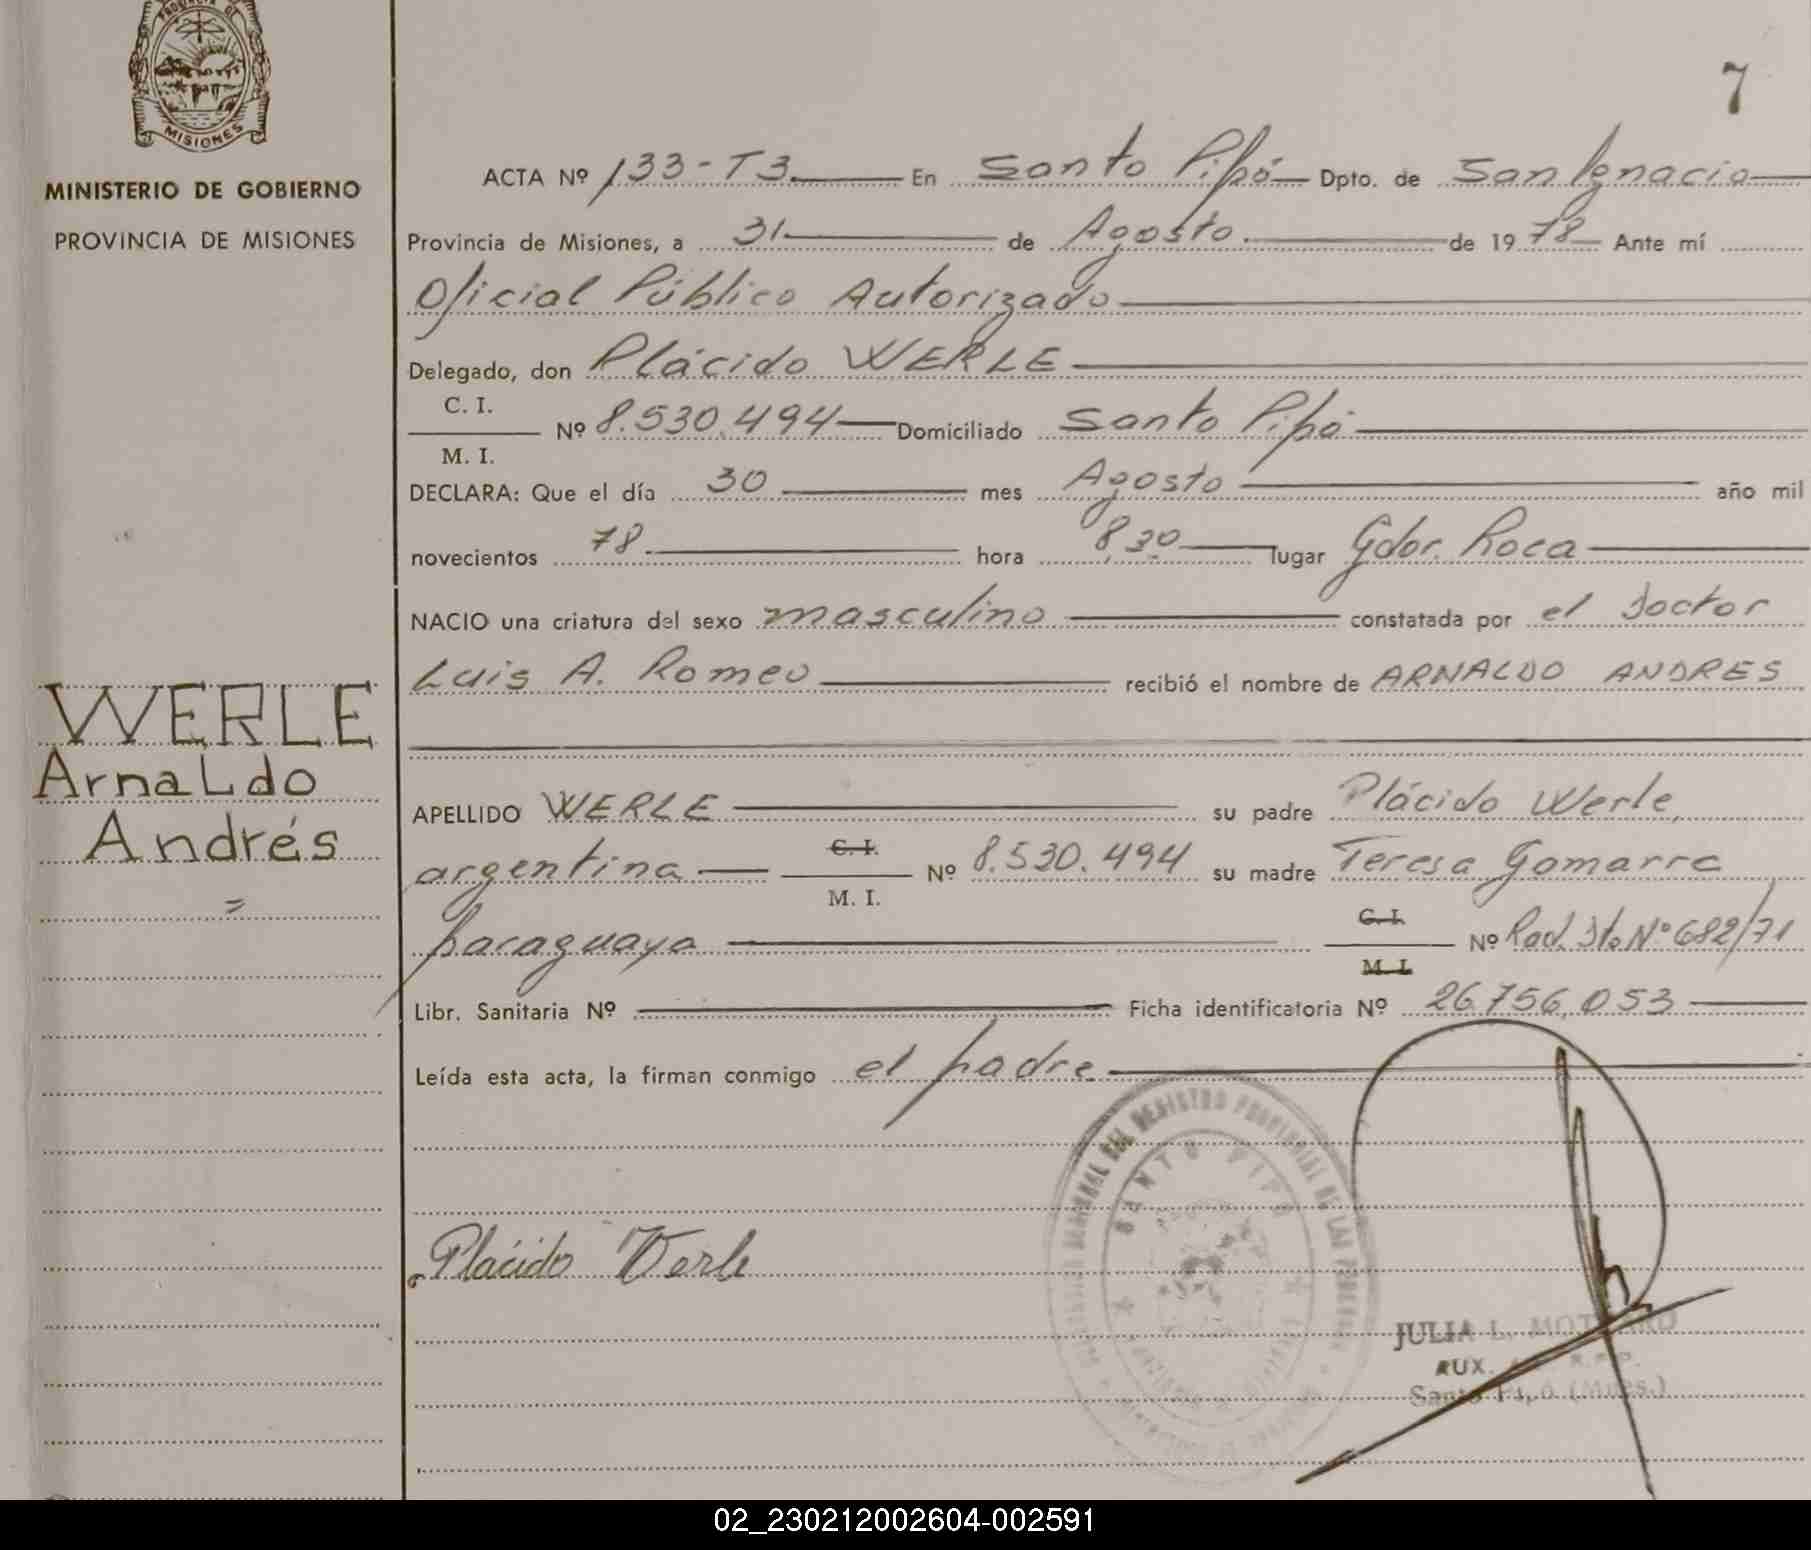 PROVINCIA DE
MISIONES
MINISTERIO DE GOBIERNO
PROVINCIA DE MISIONES
7
ACTA Nº 133-T3 En Santo Pipó Dpto. de San Ignacio
Provincia de Misiones, a 31 de Agosto de 1978 Ante mí
Oficial Público Autorizado
Delegado, don Plácido WERLE
C. I.
Nº 8.530.494 Domiciliado Santo Pipó
M. I.
DECLARA: Que el día 30 mes Agosto año mil
novecientos 78 hora 8,30 lugar Gdor. Roca
NACIO una criatura del sexo masculino constatada por el Doctor
Luis A. Romeo recibió el nombre de ARNALDO ANDRES
WERLE
Arnaldo
Andrés
=
APELLIDO WERLE su padre Plácido Werle,
argentina C. I. Nº 8.530.494 su madre Teresa Gomarra
M. I.
paraguaya C. I. Nº Rad. Dto Nº 682/71
M. I.
Libr. Sanitaria Nº Ficha identificatoria Nº 26.756,053
Leída esta acta, la firman conmigo el padre
DEL REGISTRO PROVINCIAL DE LAS PERSONAS
SANTO PIPO
Plácido Werle
JULIA L.
AUX. R.P.P.
Santo Pipó (Mnes.)
02_230212002604-002591